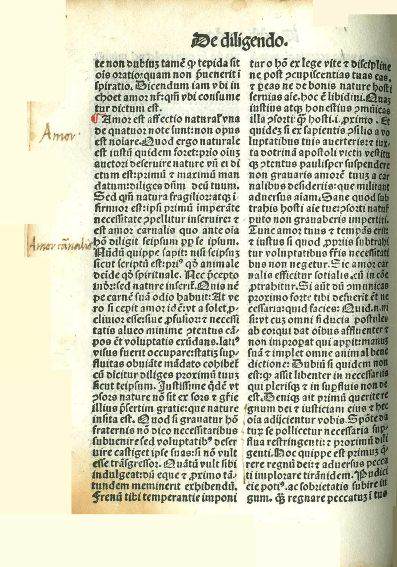 De diligendo.
te non dubius tamē ꝙ tepida sit
ois oratio: quam non p̄uenerit i
spiratio. Dicendum iam vbi in
choet amor nr̄: qm̄ vbi consume
tur dictum est.
Amor est affectio naturał vna
de quatuor note sunt: non opus
est noiare. Quod ergo naturale
est iustū quidem foret: prio oīuꝫ
auctori deseruire nature vn̄ ei di
ctum est: primū ⁊ maximū man
datum: diliges dūm deū tuum.
Sed qm̄ natura fragilior atqꝫ i
firmior est: ipsi primū imperāte
necessitate ꝓpellitur inseruire: ⁊
est amor carnalis quo ante oia
hō diligit seipsum ꝓp se ipsum.
Nōdū quippe sapit: nisi seipsuꝫ
sicut scriptū est: priꝰ qd̄ animale
deīde qd̄ spirituale. Nec p̄cepto
īdr̄: sed nature inserit̄. Quis nē
pe carnē suā odio habuit: At ve
ro si cepit amor idē: vt a solet, p̄
cliuior esse: siue ꝓfusior ⁊ necessi
tatis alueo minime ꝯtentus cā
pos et̄ voluptatis exūdans. latiꝰ
visus fuerit occupare: statiꝫ sup
fluitas obuiāte mādato cohibet̄
cū dicitur diliges proximū tuuꝫ
sicut teipsum. Justissime qd̄ē vt
ꝯsors nature nō sit ex sors ⁊ gr̄e
illius p̄sertim gratie: que nature
insita est. Quod si grauatur hō
fraternis nō dico necessitatibus
subuenire sed voluptatibꝰ deser
uire castiget ipse suas: si nō vult
esse trāsgressor. Quātū vult sibi
indulgeat: dū eque ⁊ ꝓximo tā
tundem meminerit exhibendū.
Frenū tibi temperantie imponi
tur o hō ex lege vite ⁊ discipline
ne post ꝯcupiscentias tuas eas,
⁊ peas ne de bonis nature hosti
seruias aīe, hoc ē libidini. Quāꝫ
iustius atqꝫ honestius ꝯmūicas
illa ꝯsorti: qꝫ hosti .i. proximo. Et
quidez si ex sapientis ꝯsilio a vo
luptatibus tuis auerteris: ⁊ iux
ta doctrinā apostoli victu vestitu
qꝫ ꝯtentus paulisper suspendere
non grauaris amorē tuuꝫ a car
nalibus desideriis: que militant
aduersus aīam. Sane quod sub
trahis hosti aīe tue: ꝯsorti nature
puto non grauaberis impertiri.
Tunc amor tuus ⁊ temꝑās erit̄
⁊ iustus si quod ꝓpriis subtrahi
tur voluptatibus fr̄is necessitati
bus non negetur. Sic amor car
nalis efficitur ⁊ socialis, cū in cōe
ꝓtrahitur. Si aūt dū ꝯmunicas
proximo forte tibi defuerit et̄ ne
cessaria: quid facies: Quid. n. ni
si vt cuꝫ omni fiducia postules
ab eo: qui dat oībus affluenter ⁊
non improperat qui aperit: manuꝫ
suā ⁊ implet omne animal bene
dictione: Dubiū si quidem non
est: ꝙ assit libenter in necessariis
qui plerisqꝫ ⁊ in suꝑfluis non de
est. Deniqꝫ ait primū querite re
gnum dei ⁊ iusticiam eius ⁊ hec
oīa adiicientur vobis. Spōte da
turꝫ se pollicetur necessaria suꝑ
flua restringenti: ⁊ proximū dili
genti. Hoc quippe est primuꝫ q̄
rere regnū dei: ⁊ aduersus pecca
ti implorare tirānidem. Pudici
cie potiꝰ. ac sobrietatis subire iu
gum. qꝫ regnare peccatuꝫ i tuo
Amor.
Amor cārnalis